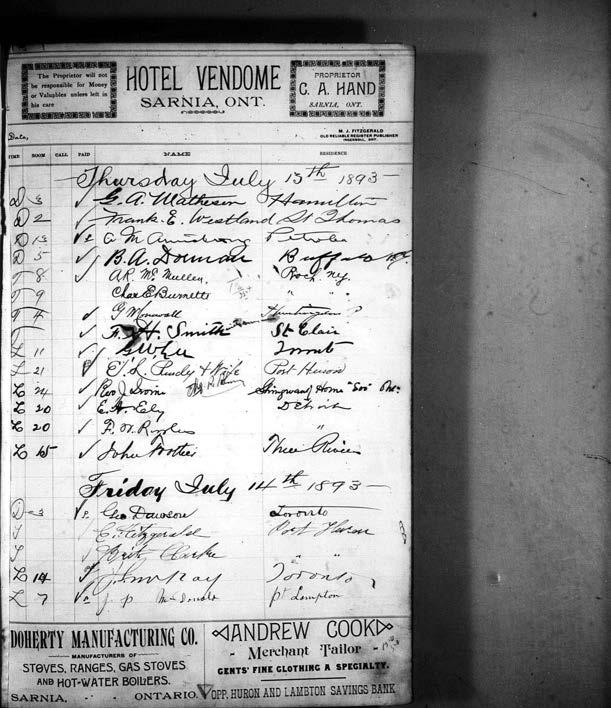 The Proprietor will not
be responsible for Money
or Valuables unless left in
his care
HOTEL VENDOME
SARNIA, ONT.
PROPRIETOR
C. A. HAND
SARNIA, ONT.
Date,
M. J. FITZGERALD
OLD RELIABLE REGISTER PUBLISHER
INGERSOLL, ONT.
TIME ROOM CALL PAID NAME RESIDENCE
Thursday July 13th 1893
D 3 G. A. Matheson Hamilton
D 2 Frank E. Westland St Thomas
D 13 A M Armstrong Petrolea
D 5 B. A. Dorman Buffalo NY.
T 8 A R. Mc Mullen Roch. N.Y.
T 9 Chas E Burnette " "
T 4 G
T F. H. Smith St Clair
L 11 Toronto
L 21 & Wife Port Huron
L 24 Rev J Irvine Shingwauk Home "Soo" Ont.
L 20 E. H. Ely Detroit
L 20 "
L 15 John Three Rivers
Friday July 14th 1893
D 3 Geo Dawson Toronto
T C. Fitzgerald Port Huron
T Clarke " "
L 14 Toronto
L 7 J. P. McDonald Pt Lambton
DOHERTY MANUFACTURING CO.
MANUFACTURERS OF
STOVES, RANGES, GAS STOVES
AND HOT-WATER BOILERS.
SARNIA, - - ONTARIO.
ANDREW COOK
- Merchant Tailor -
GENTS' FINE CLOTHING A SPECIALTY.
OPP. HURON AND LAMBTON SAVINGS BANK